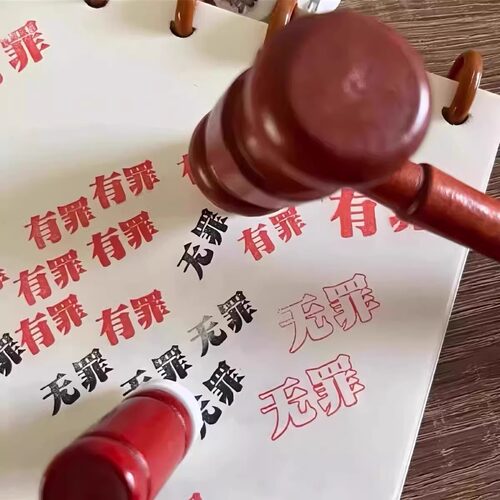 有罪
有罪
有罪
有罪
有罪
无罪
有罪
有罪
有罪
有罪
无罪
无罪
无罪
无罪
无罪
无罪
无罪